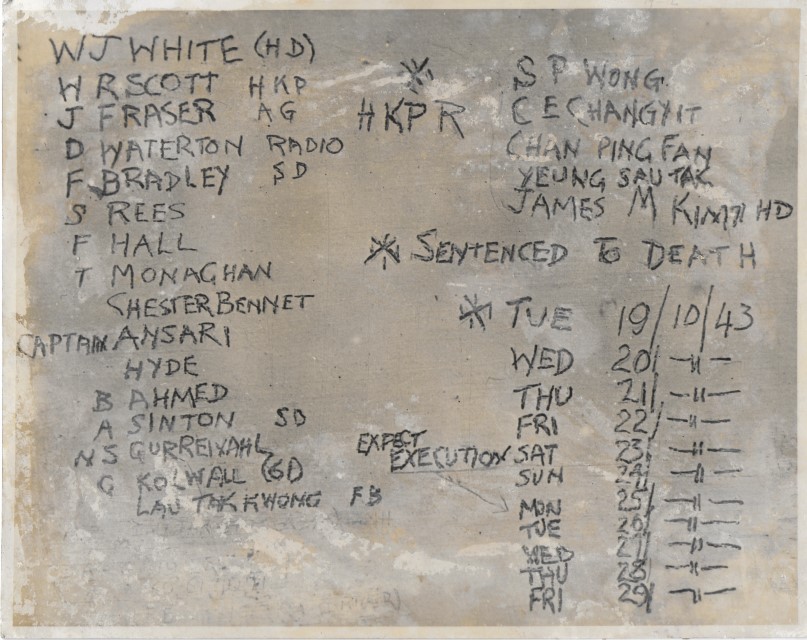 WJ WHITE (HD)
W R SCOTT HKP
J FRASER AG
D WATERTON RADIO
F BRADLEY SD
S REES
F HALL
T MONAGHAN
CHESTER BENNET
CAPTAIN ANSARI
HYDE
B AHMED
A SINTON SD
N S
G KOLWALL (GD
LAU TAK KWONG FB
HKPR
S P WONG
C E CHANGYIT
CHAN PING FAN
YEUNG SAU TAK
JAMES M KIM HD
SENTENCED TO DEATH
TUE 19/10/43
WED 20/ -〃-
THU 21/ -〃-
FRI 22/ -〃-
EXPECT
EXECUTION
SAT 23/ -〃-
SUN 24/ -〃-
MON 25/ -〃-
TUE 26/ -〃-
WED 27/ -〃-
THU 28/ -〃-
FRI 29/ -〃-